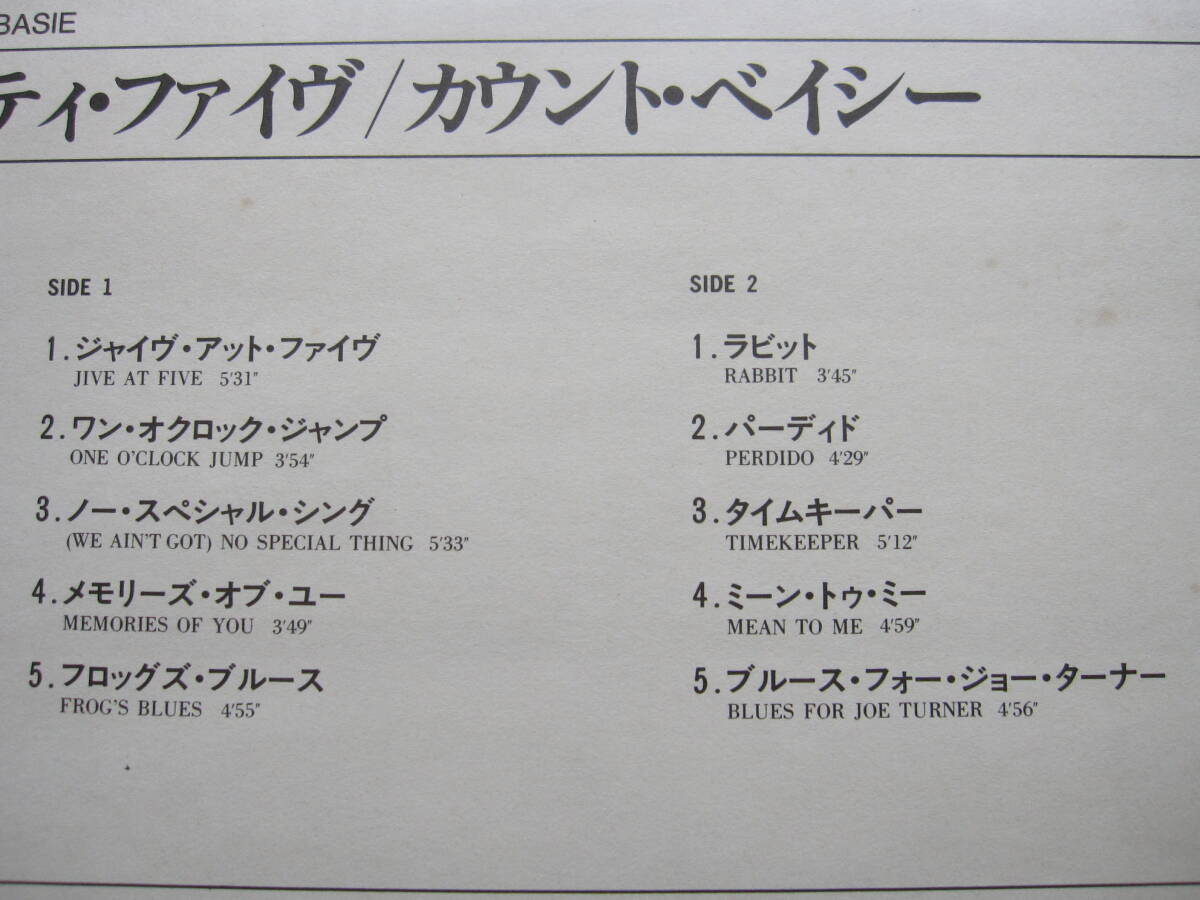 BASIE
ティ・ファイヴ/カウント・ベイシー
SIDE 1
1.ジャイヴ・アット・ファイヴ
JIVE AT FIVE 5'31"
2.ワン・オクロック・ジャンプ
ONE O'CLOCK JUMP 3'54"
3.ノー・スペシャル・シング
(WE AIN'T GOT) NO SPECIAL THING 5'33"
4.メモリーズ・オブ・ユー
MEMORIES OF YOU 3'49"
5.フロッグズ・ブルース
FROG'S BLUES 4'55"
SIDE 2
1.ラビット
RABBIT 3'45"
2.パーディド
PERDIDO 4'29"
3.タイムキーパー
TIMEKEEPER 5'12"
4.ミーン・トゥ・ミー
MEAN TO ME 4'59"
5.ブルース・フォー・ジョー・ターナー
BLUES FOR JOE TURNER 4'56"